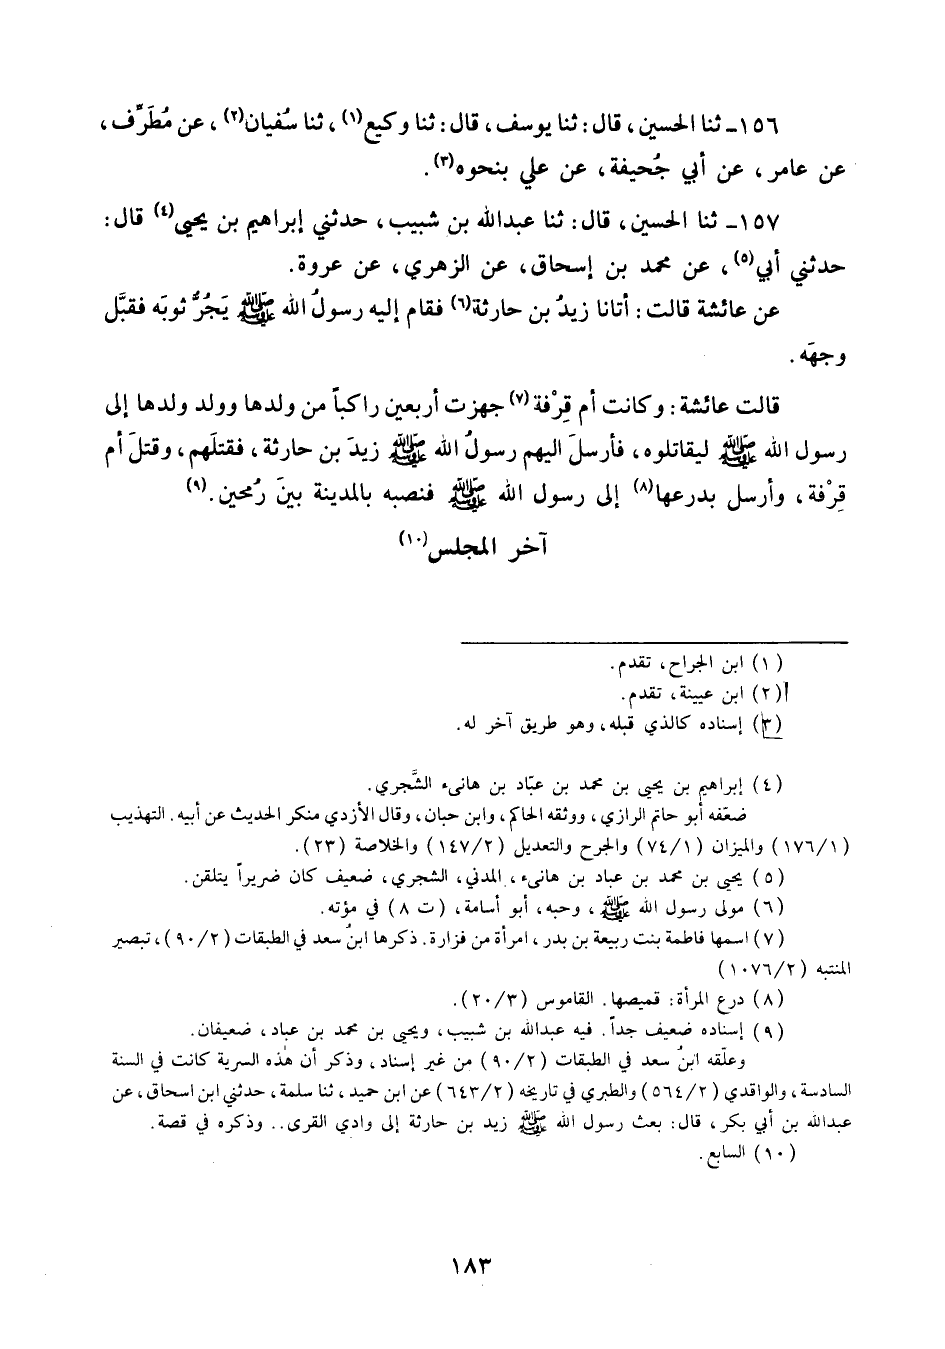 ١٥٦ـ ثنا الحسين، قال: ثنا يوسف، قال: ثنا وكيع(١)، ثنا سُفيان(٢)، عن مُطَرِّف،
عن عامر، عن أبي جُحيفة، عن علي بنحوه(٣).
١٥٧ـ ثنا الحسين، قال: ثنا عبدالله بن شبيب، حدثني إبراهيم بن يحيى(٤) قال:
حدثني أبي(٥)، عن محمد بن إسحاق، عن الزهري، عن عروة.
عن عائشة قالت: أتانا زيدُ بن حارثة(٦) فقام إليه رسولُ الله ﷺ يَجُرُّ ثوبَه فقبَّل
وجهَه.
قالت عائشة: وكانت أم قِرْفة(٧) جهزت أربعين راكباً من ولدها وولد ولدها إلى
رسول الله ﷺ ليقاتلوه، فأرسلَ اليهم رسولُ الله ﷺ زيدَ بن حارثة، فقتلَهم، وقتلَ أم
قِرْفة، وأرسل بدرعها(٨) إلى رسول الله ﷺ فنصبه بالمدينة بينَ رُمحين.(٩)
آخر المجلس(١٠)
(١) ابن الجراح، تقدم.
(٢) ابن عيينة، تقدم.
(٣) إسناده كالذي قبله، وهو طريق آخر له.
(٤) إبراهيم بن يحيى بن محمد بن عبّاد بن هانىء الشَّجري.
ضعّفه أبو حاتم الرازي، ووثقه الحاكم، وابن حبان، وقال الأزدي منكر الحديث عن أبيه. التهذيب
(١٧٦/١) والميزان (٧٤/١) والجرح والتعديل (١٤٧/٢) والخلاصة (٢٣).
(٥) يحيى بن محمد بن عباد بن هانىء، المدني، الشجري، ضعيف كان ضريراً يتلقن.
(٦) مولى رسول الله ﷺ، وحبه، أبو أسامة، (ت ٨) في مؤته.
(٧) اسمها فاطمة بنت ربيعة بن بدر، امرأة من فزارة. ذكرها ابنُ سعد في الطبقات (٩٠/٢)، تبصير
المنتبه (١٠٧٦/٢)
(٨) درع المرأة: قميصها. القاموس (٢٠/٣).
(٩) إسناده ضعيف جداً. فيه عبدالله بن شبيب، ويحيى بن محمد بن عباد، ضعيفان.
وعلّقه ابنُ سعد في الطبقات (٩٠/٢) من غير إسناد، وذكر أن هذه السرية كانت في السنة
السادسة، والواقدي (٥٦٤/٢) والطبري في تاريخه (٦٤٣/٢) عن ابن حميد، ثنا سلمة، حدثني ابن اسحاق، عن
عبدالله بن أبي بكر، قال: بعث رسول الله ﷺ زيد بن حارثة إلى وادي القرى.. وذكره في قصة.
(١٠) السابع.
١٨٣